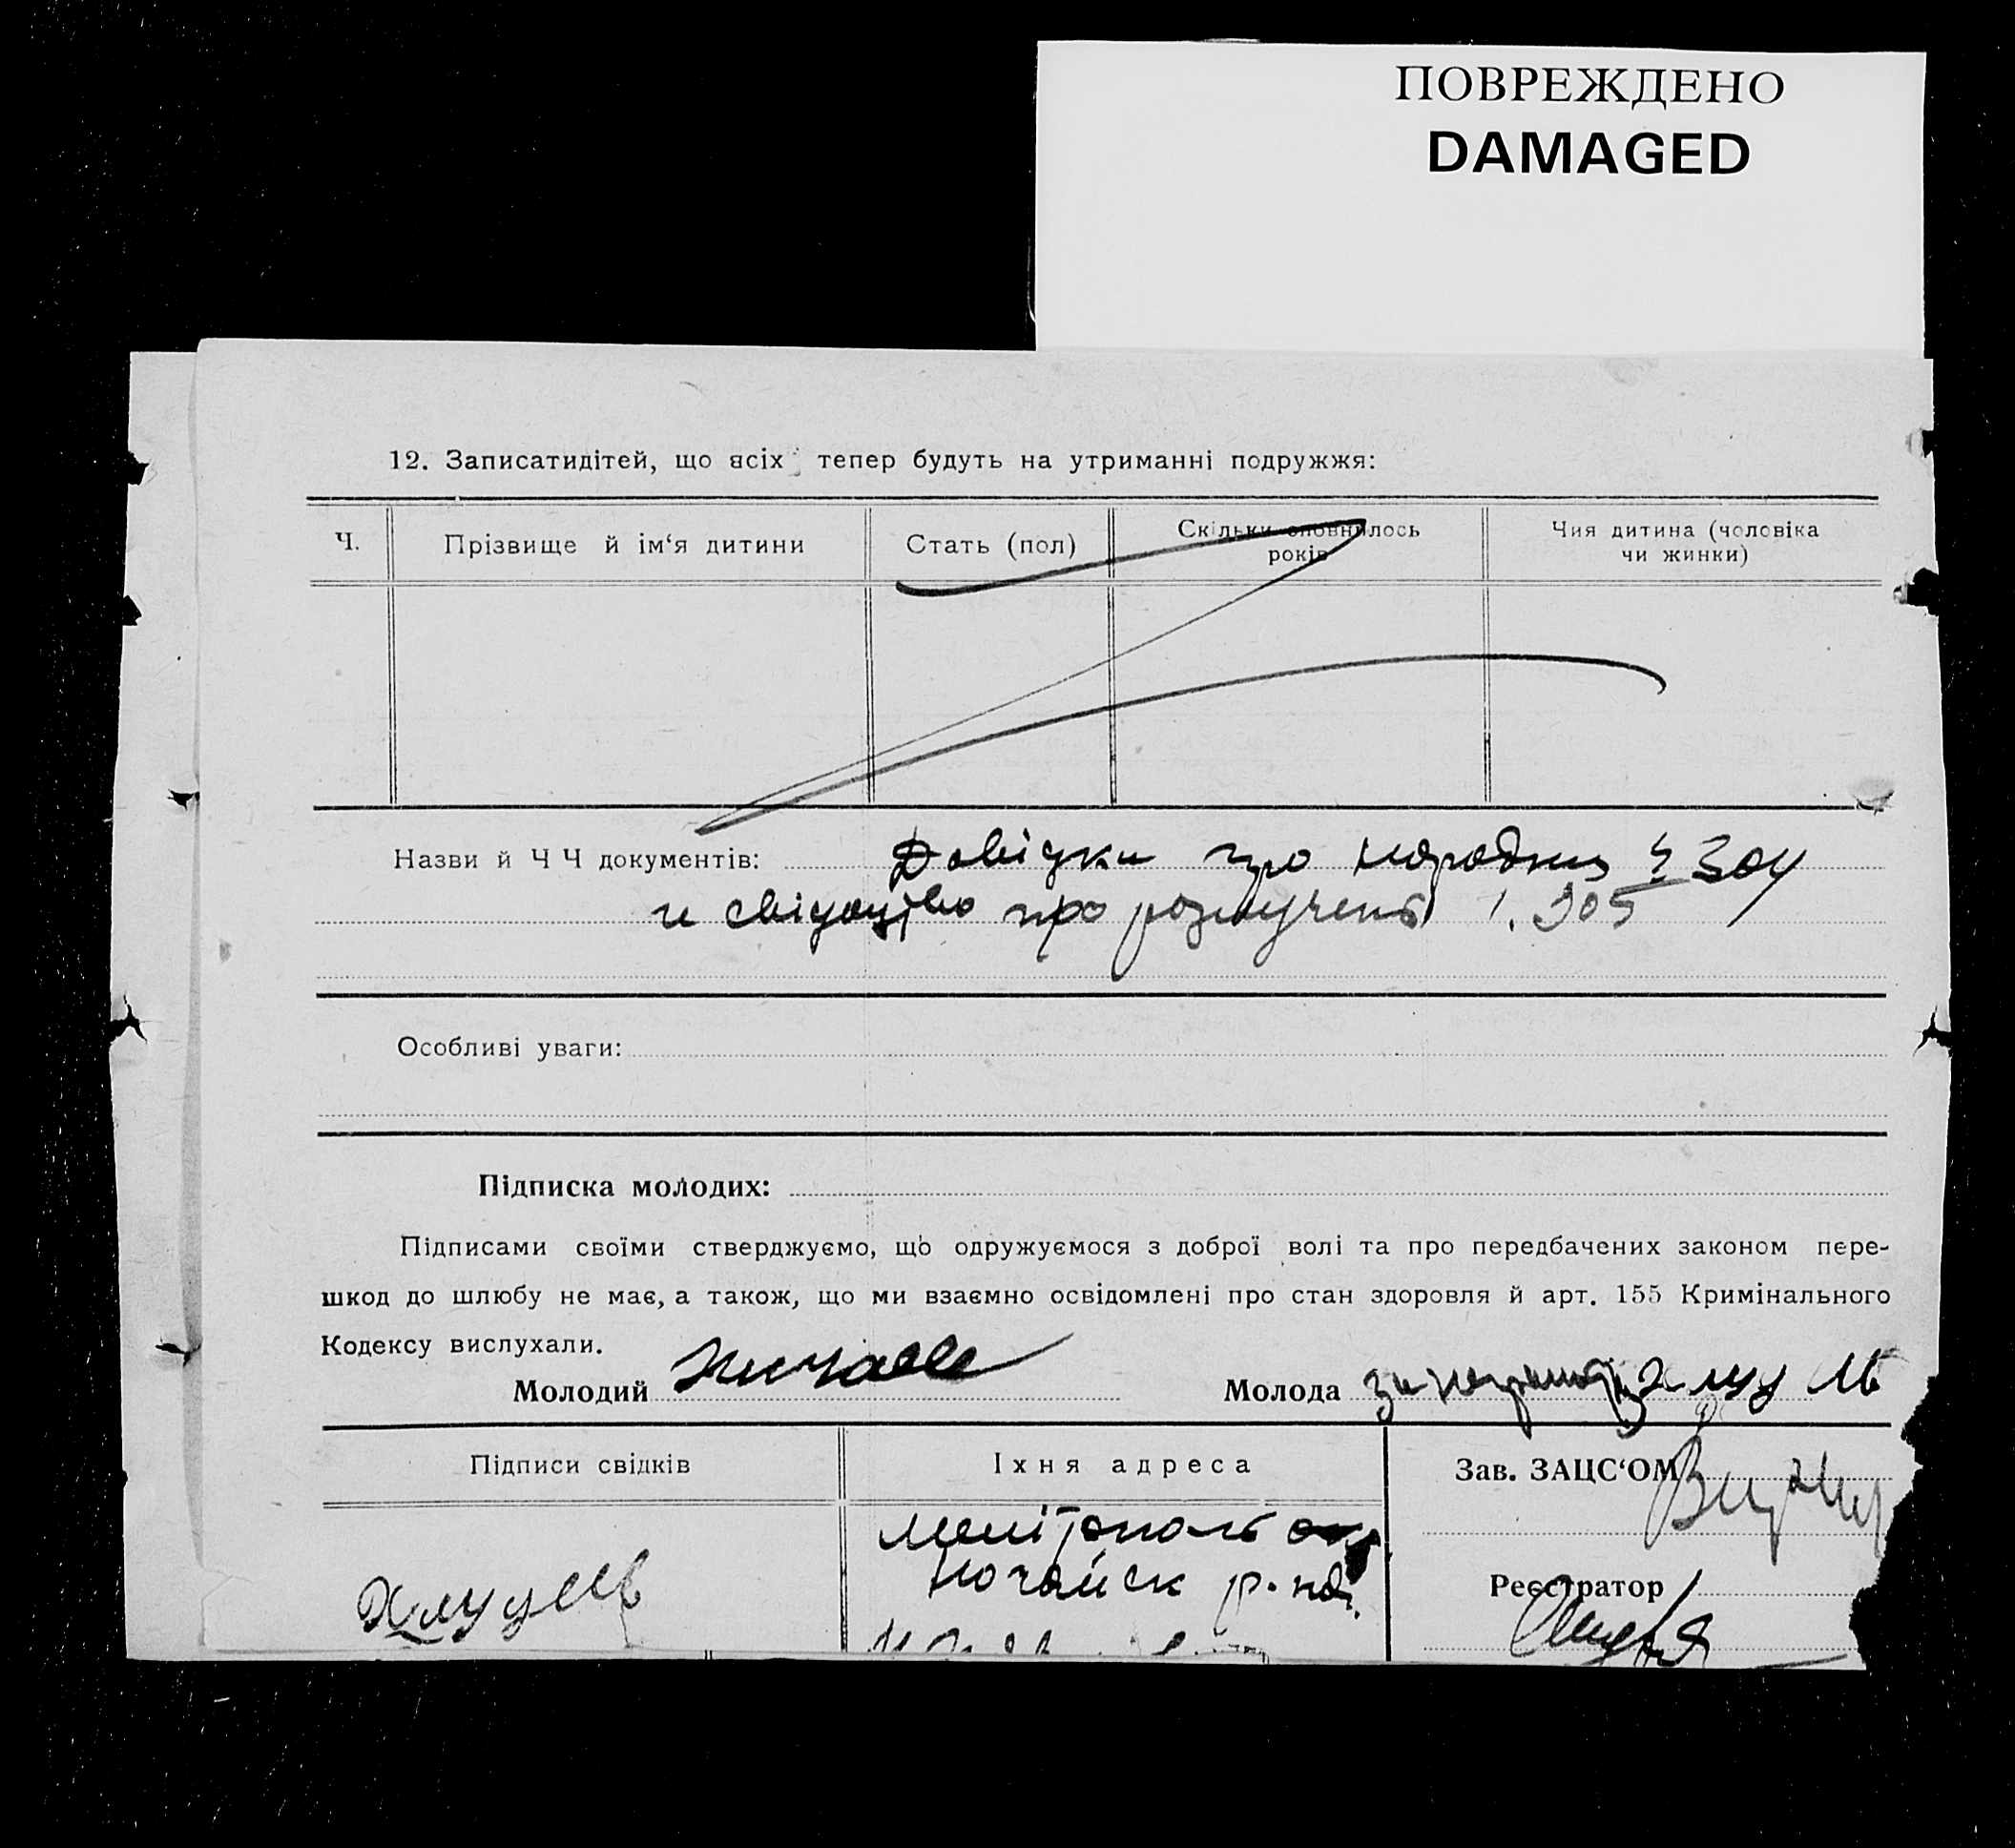 ПОВРЕЖДЕНО
DAMAGED
12. Записатидітей, що всіх тепер будуть на утриманні подружжя:
Ч.
Прізвище й ім‘я дитини
Стать (пол)
Скільки сповнилось
років
Чия дитина (чоловіка
чи жинки)
Назви й Ч Ч документів: Довідки про народж 304
и свідоцтво про розлучень 1. 305
Особливі уваги:
Підписка молодих:
Підписами своїми стверджуємо, що одружуємося з доброї волі та про передбачених законом пере-
шкод до шлюбу не має, а також, що ми взаємно освідомлені про стан здоровля й арт. 155 Кримінального
Кодексу вислухали.
Молодий
Молода
Підписи свідків
Іхня адреса
Зав. ЗАЦС‘ОМ
Мелітополь окр
р.
Реєстратор